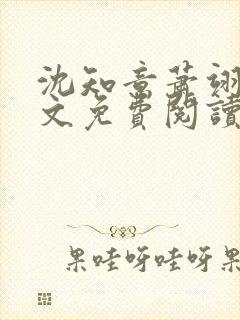 沈知意萧翊
文免費閱讀
果哇呀哇呀果